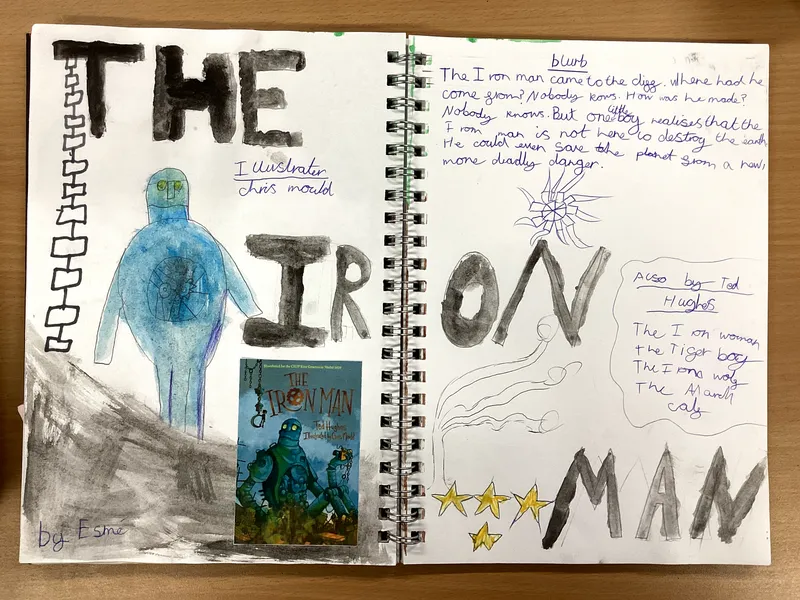 THE
Illustrater
chris mould
IR
THE
IRON MAN
Ted Hughes
Illustrated by Chris Mould
by Esme
blurb
The Iron man came to the cligg. Where had he
come from? Nobody kows. How was he made?
Nobody knows. But one little boy realises that the
Iron man is not here to destroy the earth
He could even save the planet from a new,
more deadly danger.
ON
Also by Ted
Hughes
The Iron woman
the Tiger boy
The Iron wolf
The March
calf
MAN